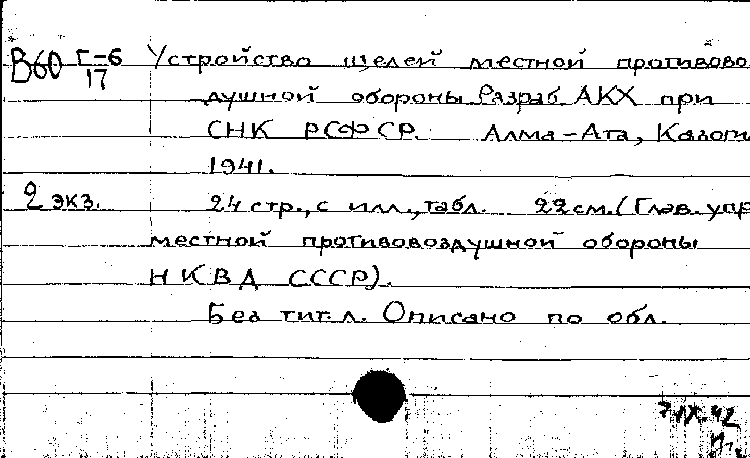 В60 Г-6 Устройство щелей местной противовоз
17
душной обороны. Разраб. АКХ при
СНК РСФСР. Алма-Ата,
1941.
2 экз. 24 стр., с илл., табл. 22 см. (Глав. упр
местной противовоздушной обороны
НКВД СССР).
Без тит. л. Описано по обл.
7/IX-42